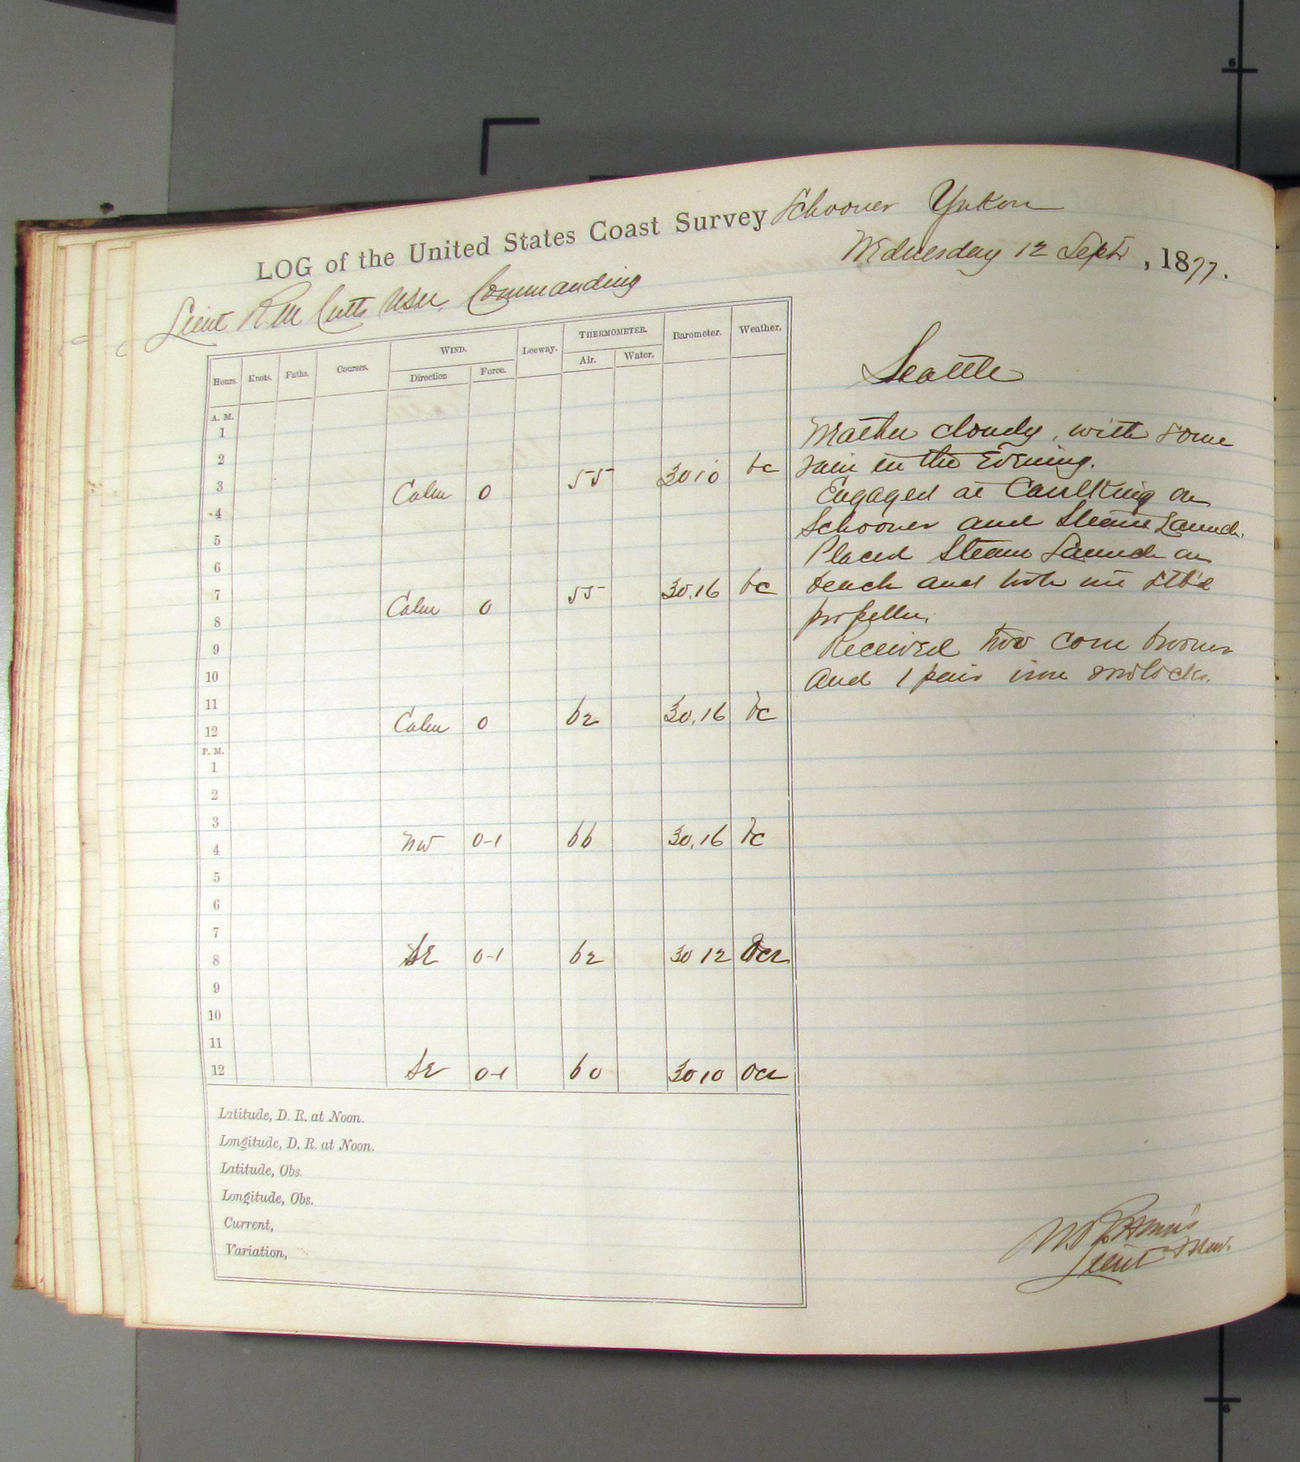 LOG of the United States Coast Survey Schooner Yukon
Wednesday 12 Sept, 1877.
Lieut R M Cutts USN. Commanding
Hours. Knots. Faths. Courses. WIND. Leeway. THERMOMETER. Barometer. Weather.
Direction Force. Air. Water.
A. M.
1
2
3
4 Calm 0 55 30 10 bc
5
6
7
8 Calm 0 55 30.16 bc
9
10
11
12 Calm 0 62 30.16 bc
P. M.
1
2
3
4 NW 0-1 66 30.16 bc
5
6
7
8 SE 0-1 62 30 12 Ocr
9
10
11
12 SE 0-1 60 30 10 Ocr
Latitude, D. R. at Noon.
Longitude, D. R. at Noon.
Latitude, Obs.
Longitude, Obs.
Current,
Variation,
Seattle
Weather cloudy, with some
rain in the Evening.
Engaged at Caulking on
Schooner and Steam Launch.
Placed Steam Launch on
beach and
propeller.
Received two corn brooms
and 1 pair iron rowlocks.
Lieut
6
6